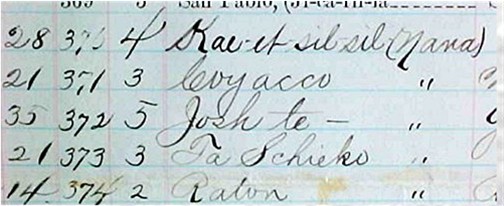 369 3 San Pablo, (Ji-ca-ril-la
28 370 4 Kae-et-sil-sil-(Nana)
21 371 3 Coyacco "
35 372 5 Josh te - "
21 373 3 Ta Schieko "
14 374 2 Raton "